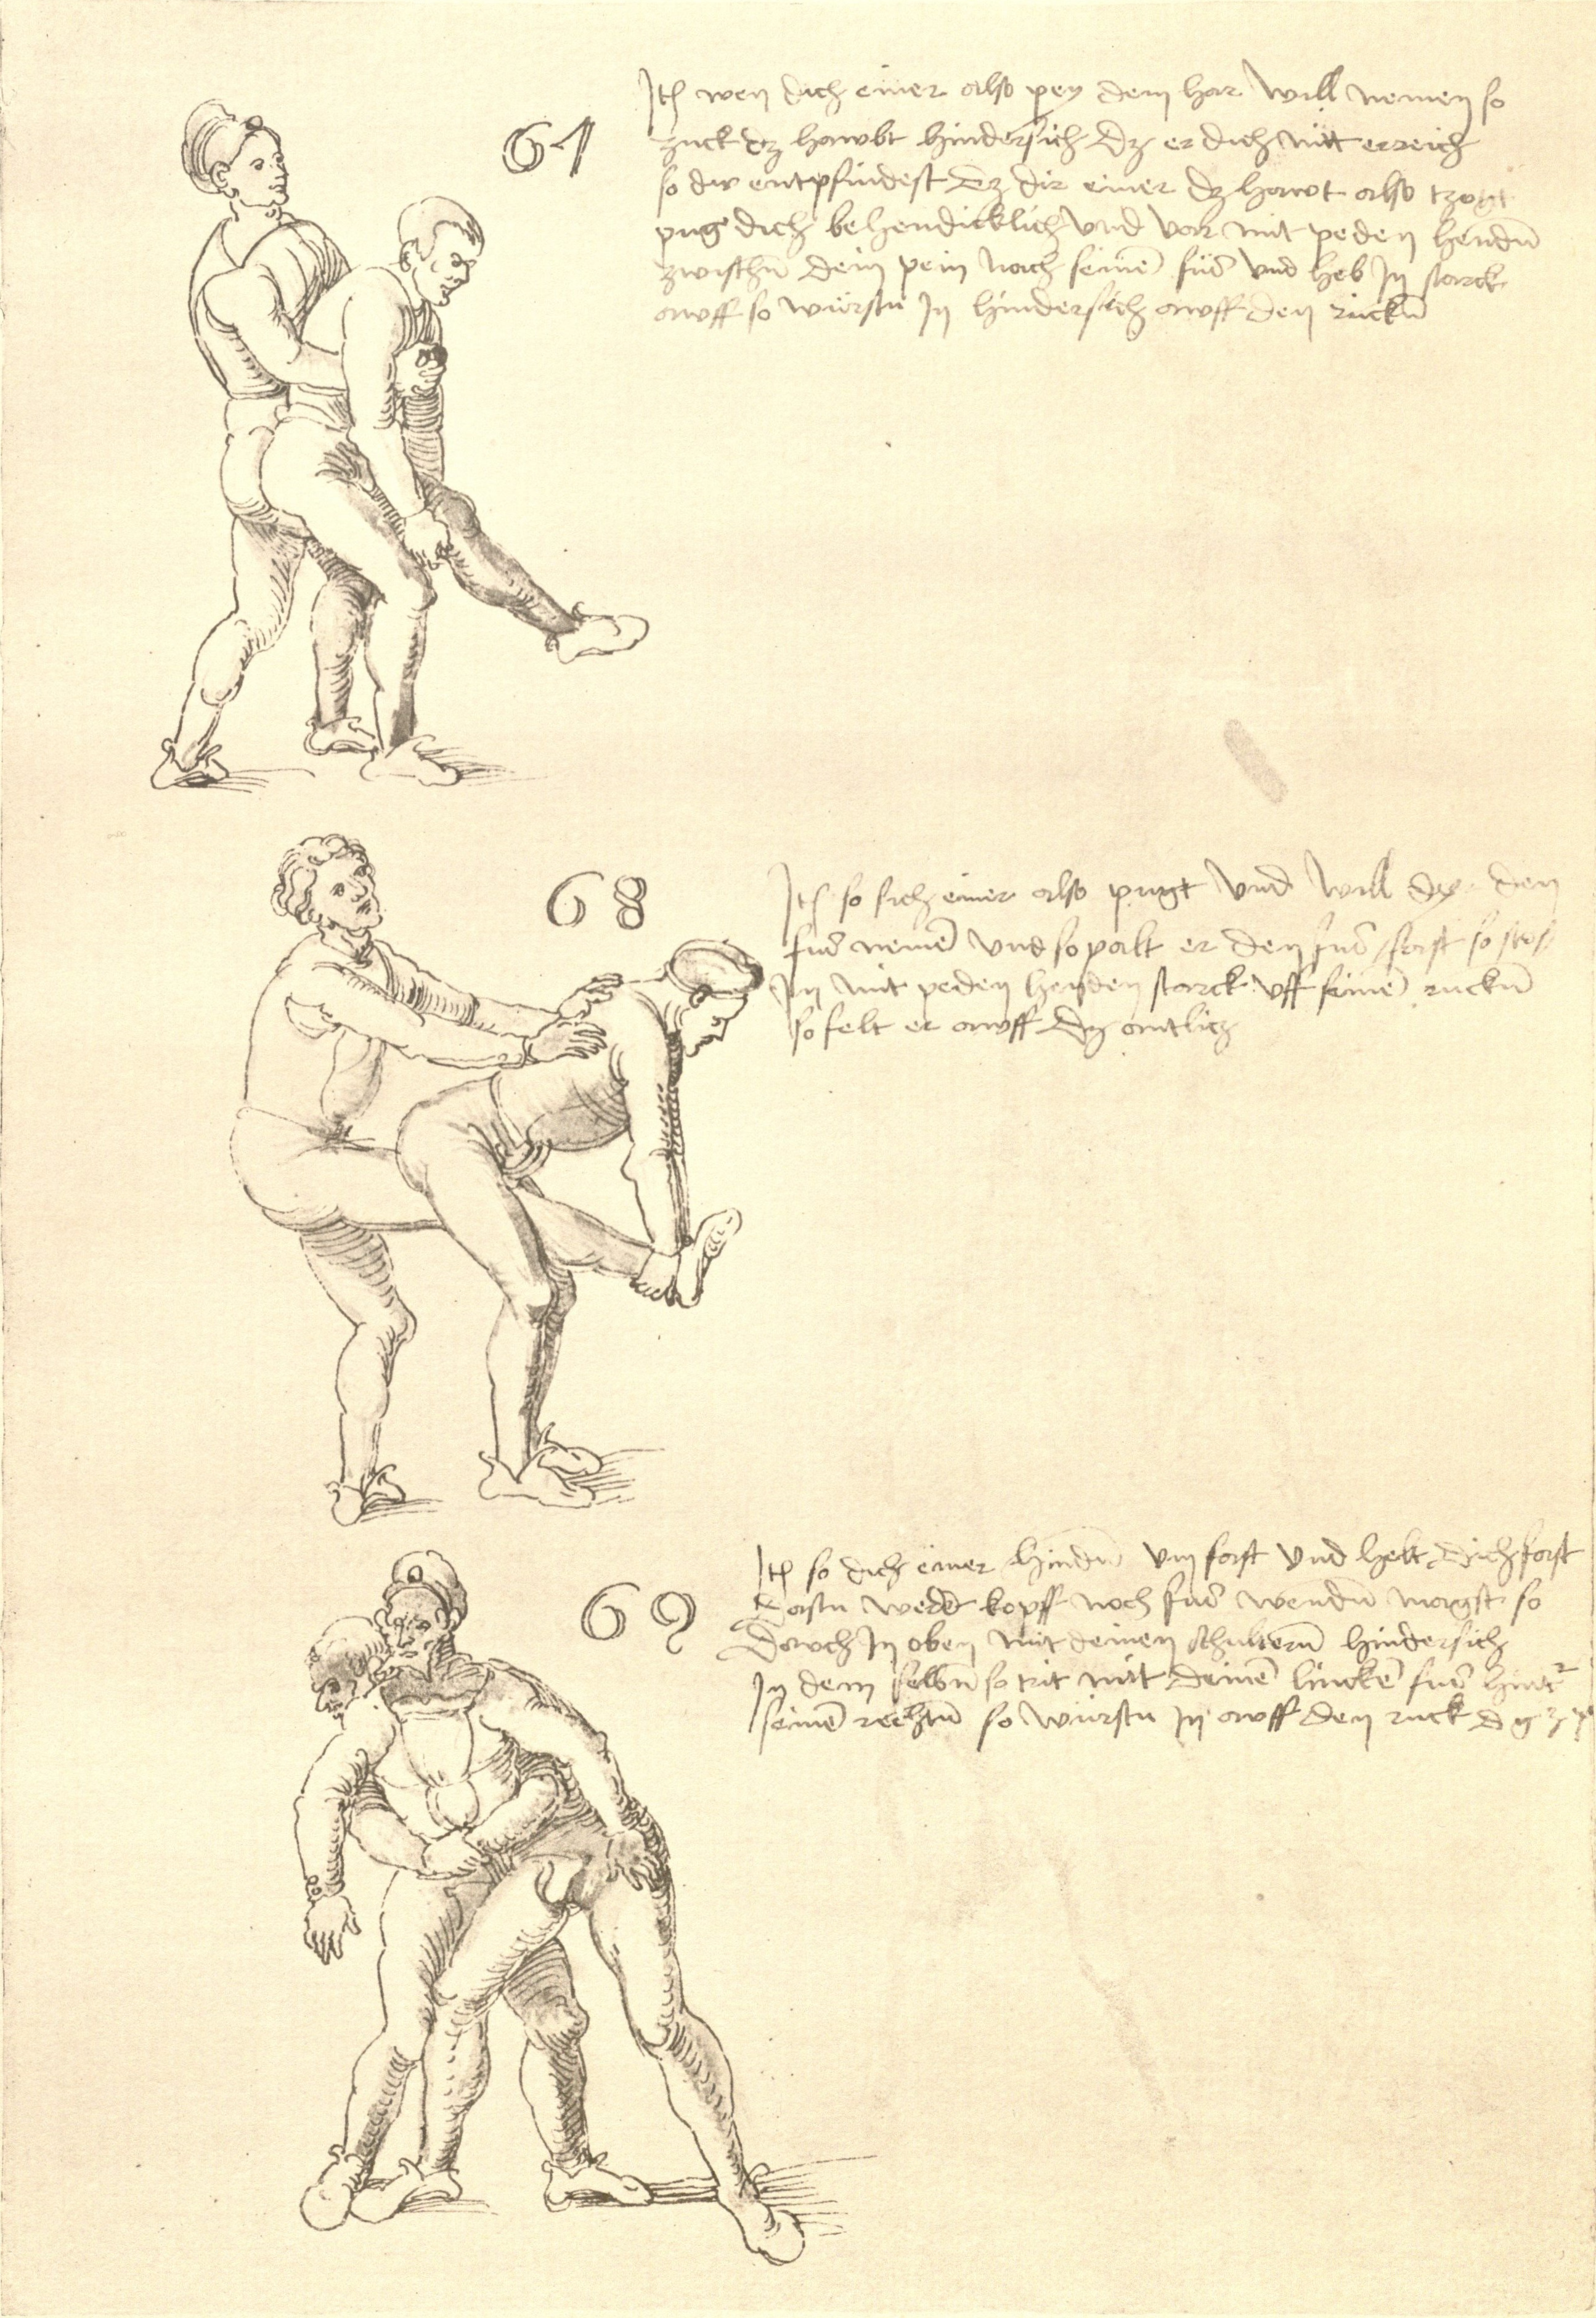 67
Itē wen dich einer also pey dem har will nemen so
zuck dz hawbt hindersich dz er dich nitt erreich
so dw entpfindest dz dir einer dz hawt also tzogt
pug dich behendicklich und var mit peden hendn̄
zwischn̄ dein pein nach seinē fus und heb In starck
awff so würstu In hindersich awff den ruckn̄
68
Itē so sich einer also pugt und will dy den
fus nemē und so palt er den fus fast so stos
In mit peden henden starck uff seinē ruckn̄
so felt er awff dz antlitz
69
Itē so dich einer hindn̄ um fast und helt dich fast
dastu weder kopff noch fus wendn̄ magst so
dawch In oben mit deinen schultern̄ hindersich
In dem selbn̄ so trit mit deinē linckē fus hint²
seinē rechtn̄ so würstu In awff den ruck